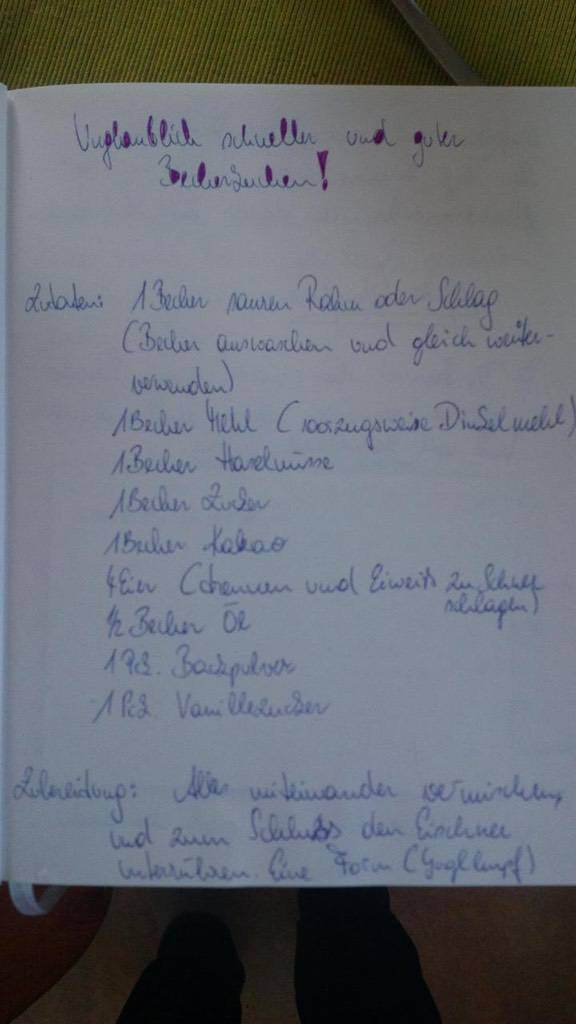 Unglaublich schneller und guter
Becherkuchen!
Zutaten: 1 Becher sauren Rahm oder Schlag
(Becher auswaschen und gleich weiter-
verwenden)
1 Becher Mehl (vorzugsweise Dinkelmehl)
1 Becher Haselnüsse
1 Becher Zucker
1 Becher Kakao
4 Eier (trennen und Eiweiß zu Schnee
schlagen)
1/2 Becher Öl
1 Pck. Backpulver
1 Pck. Vanillezucker
Zubereitung: Alles miteinander vermischen,
und zum Schluss den Eischnee
unterrühren. Eine Form (Guglhupf)